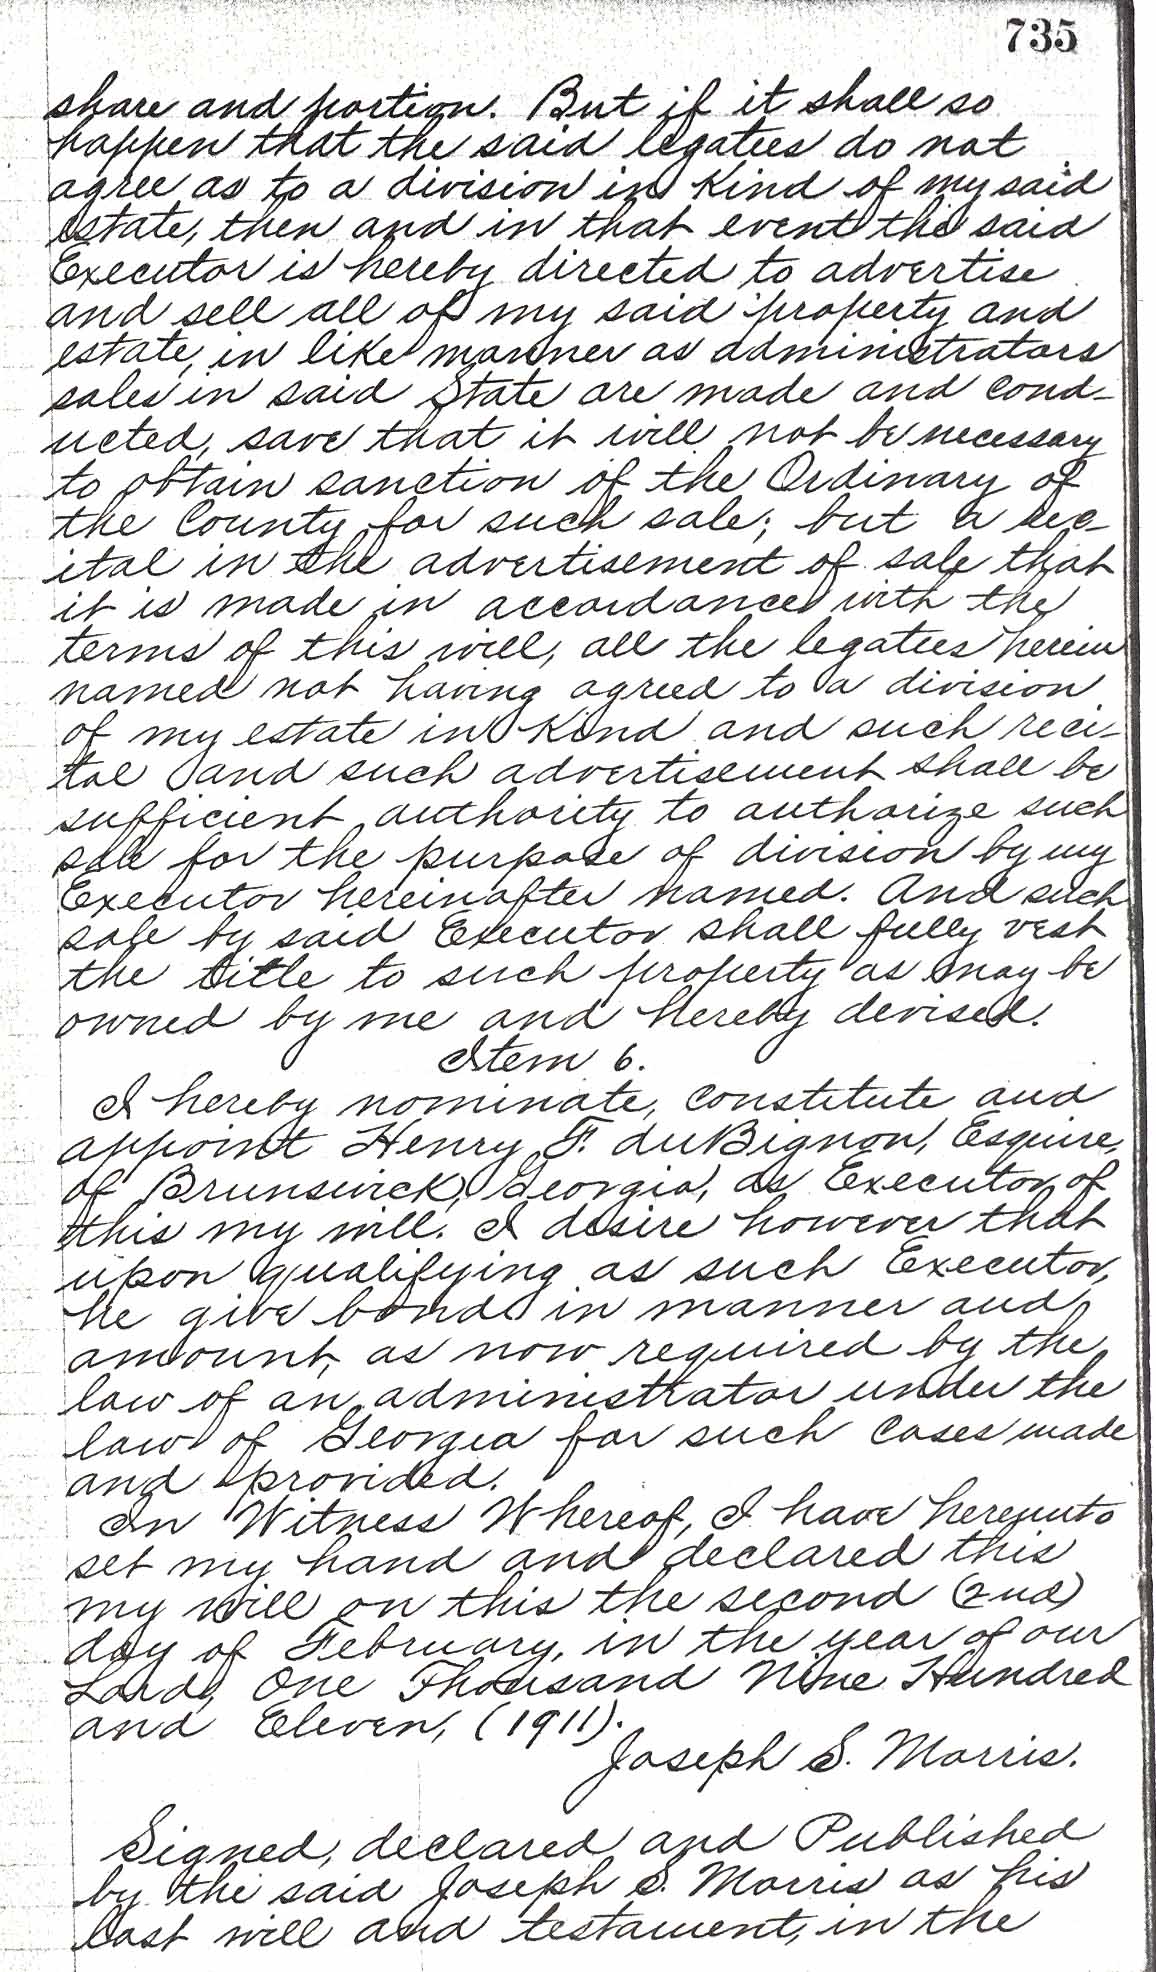 735
share and portion. But if it shall so
happen that the said legatees do not
agree as to a division in kind of my said
estate, then and in that event the said
Executor is hereby directed to advertise
and sell all of my said property and
estate, in like manner as administrators
sales in said State are made and cond-
ucted, save that it will not be necessary
to obtain sanction of the Ordinary of
the County for such sale; but a rec-
ital in the advertisement of sale that
it is made in accordance with the
terms of this will, all the legatees herein
named not having agreed to a division
of my estate in kind and such reci-
tal and such advertisement shall be
sufficient authority to authorize such
sale for the purpose of division by my
Executor hereinafter named. And such
sale by said Executor shall fully vest
the title to such property as may be
owned by me and hereby devised.
Item 6.
I hereby nominate, constitute and
appoint Henry F. duBignon, Esquire,
of Brunswick, Georgia, as Executor of
this my will. I desire however that
upon qualifying as such Executor,
he give bond in manner and
amount, as now required by the
law of an administrator under the
law of Georgia for such cases made
and provided.
In Witness Whereof, I have hereunto
set my hand and declared this
my will on this the second (2nd)
day of February, in the year of our
Lord, One Thousand Nine Hundred
and Eleven, (1911).
Joseph S. Morris.
Signed, declared and Published
by the said Joseph S. Morris as his
last will and testament, in the